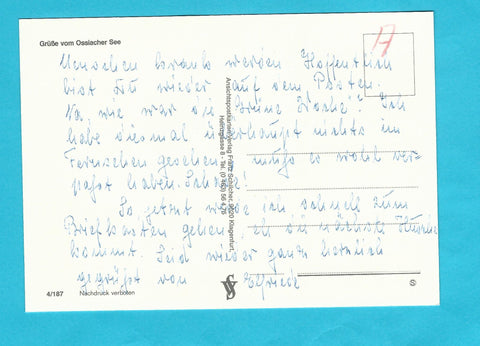 Grüße vom Ossiacher See
A
Menschen krank werden. Hoffentlich
bist Du wieder auf dem Posten.
Na, wie war die "Grüne Woche"? Ich
habe diesmal überhaupt nichts im
Fernsehen gesehen, muß es wohl ver-
paßt haben. Schade!
So, jetzt werde ich schnell zum
Briefkasten gehen, eh die nächste Husche
kommt. Seid wieder ganz herzlich
gegrüßt von Elfriede
Ansichtspostkartenverlag Franz Schilcher, 9020 Klagenfurt,
4/187 Nachdruck verboten